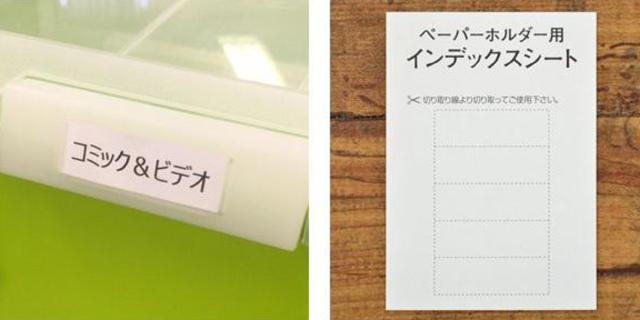 コミック&ビデオ
ペーパーホルダー用
インデックスシート
切り取り線より切り取ってご使用下さい。